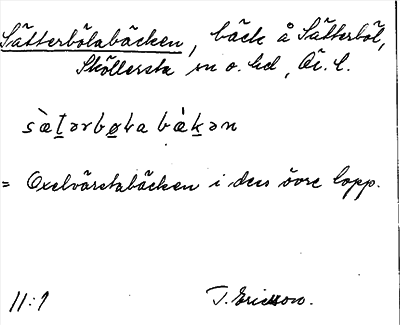 Sätterbölabäcken, bäck å Sätterböl,
Sköllersta sn o. hd, Ör. l.
sæ̀ṯərbø̱ɫa bæ̀ḵən
= Oxelvåretabäcken i dess övre lopp.
11:1 T. Ericsson.